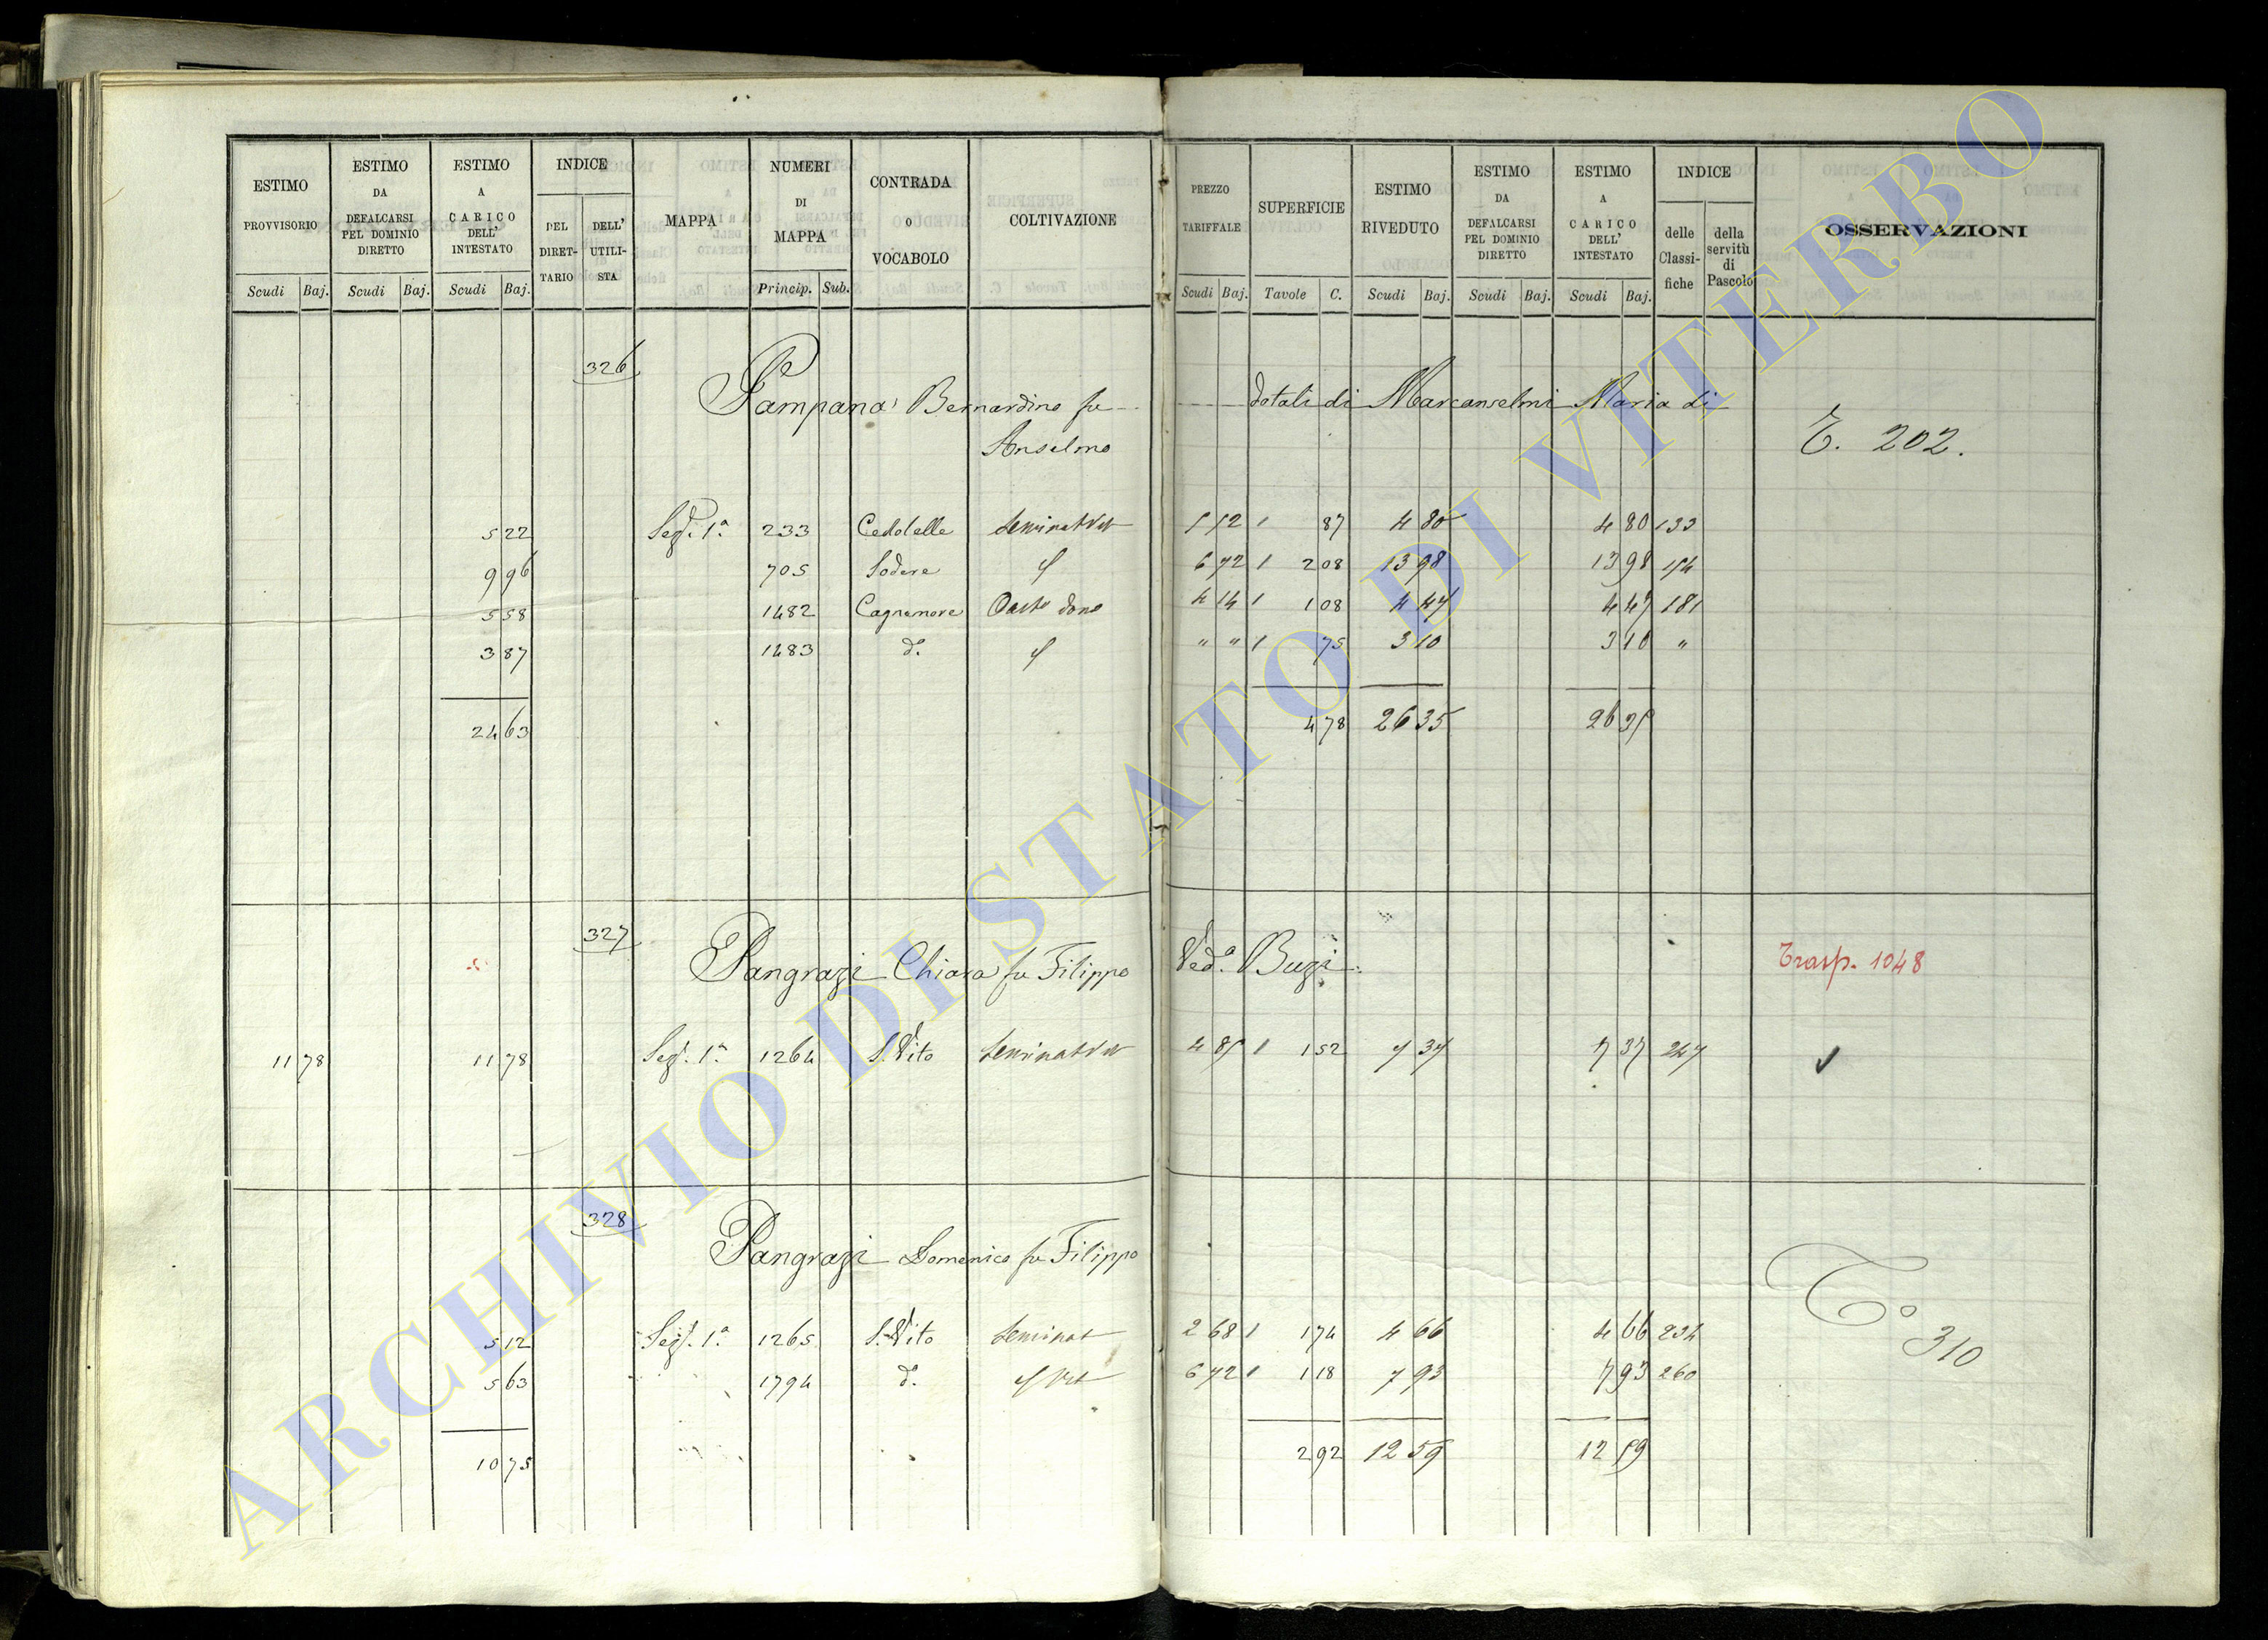 ESTIMO PROVVISORIO
Scudi Baj.
ESTIMO DA DEFALCARSI PEL DOMINIO DIRETTO
Scudi Baj.
ESTIMO A CARICO DELL' INTESTATO
Scudi Baj.
INDICE
DEL DIRET-TARIO
DELL' UTILI-STA
MAPPA
NUMERI DI MAPPA
Princip. Sub.
CONTRADA O VOCABOLO
COLTIVAZIONE
PREZZO TARIFFALE
Scudi Baj.
SUPERFICIE
Tavole C.
ESTIMO RIVEDUTO
Scudi Baj.
ESTIMO DA DEFALCARSI PEL DOMINIO DIRETTO
Scudi Baj.
ESTIMO A CARICO DELL' INTESTATO
Scudi Baj.
INDICE
delle Classi-fiche
della servitù di Pascolo
OSSERVAZIONI
326
Pampana Bernardino fu dotali di Marcanselmi Maria di
Anselmo
T. 202.
5 22 Sez. 1a 233 Cedolelle Seminat Vit 5 52 1 87 4 80 4 80 133
9 96 705 Sodere 6 72 1 2 08 13 98 13 98 154
5 58 1482 Cagnemore 4 14 1 1 08 4 47 4 47 181
3 87 1483 do. " " 1 75 3 10 3 10 "
24 63 4 78 26 35 26 35
327
Pangrazi Chiara fu Filippo Ved.a Buzi
Trasp. 1048
11 78 11 78 Sez. 1a 1264 S. Vito Seminat Vit 4 85 1 1 52 7 37 7 37 247
328
Pangrazi Domenico fu Filippo
To 310
5 12 Sez. 1a 1265 S. Vito Seminat 2 68 1 1 74 4 66 4 66 234
5 63 1794 do. Vit 6 72 1 1 18 7 93 7 93 260
10 75 2 92 12 59 12 59
ARCHIVIO DI STATO DI VITERBO